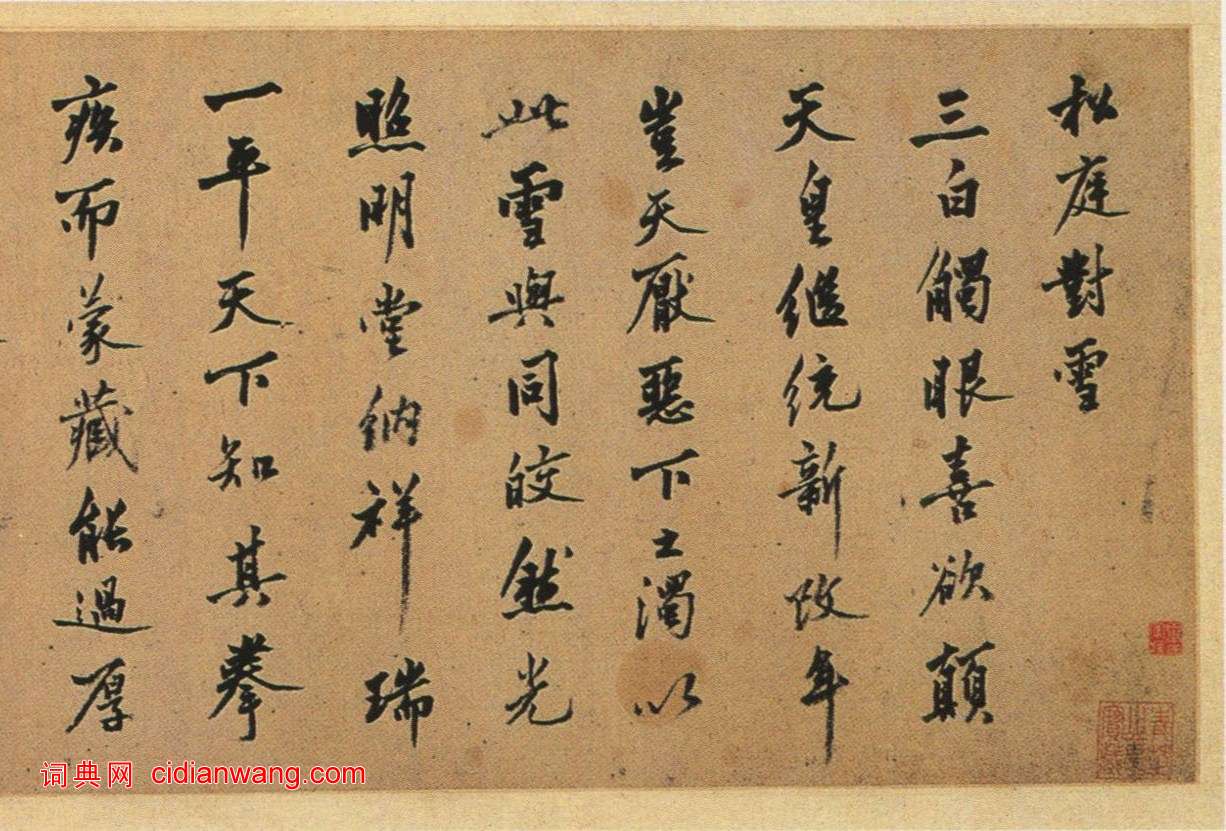 松庭對雪
三白觸眼喜欲顛
天皇繼統新改年
豈天厭惡下土濁以
此雪與同皎然光
照明堂納祥瑞
一平天下知其拳
疾而蒙藏能過厚
词典网 cidianwang.com